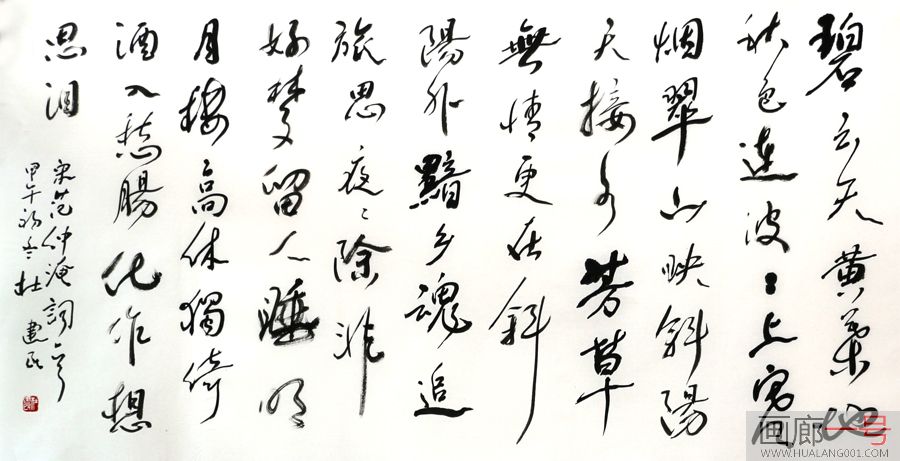 碧云天黄葉地
秋色連波〻上寒
烟翠山映斜陽
天接水芳草
無情更在斜
陽外黯乡魂追
旅思夜〻除非
好梦留人睡明
月楼高休獨倚
酒入愁腸化作想
思泪
宋范仲淹詞一首
甲午初冬杜建民
画廊一号
WWW.HUALANG001.COM